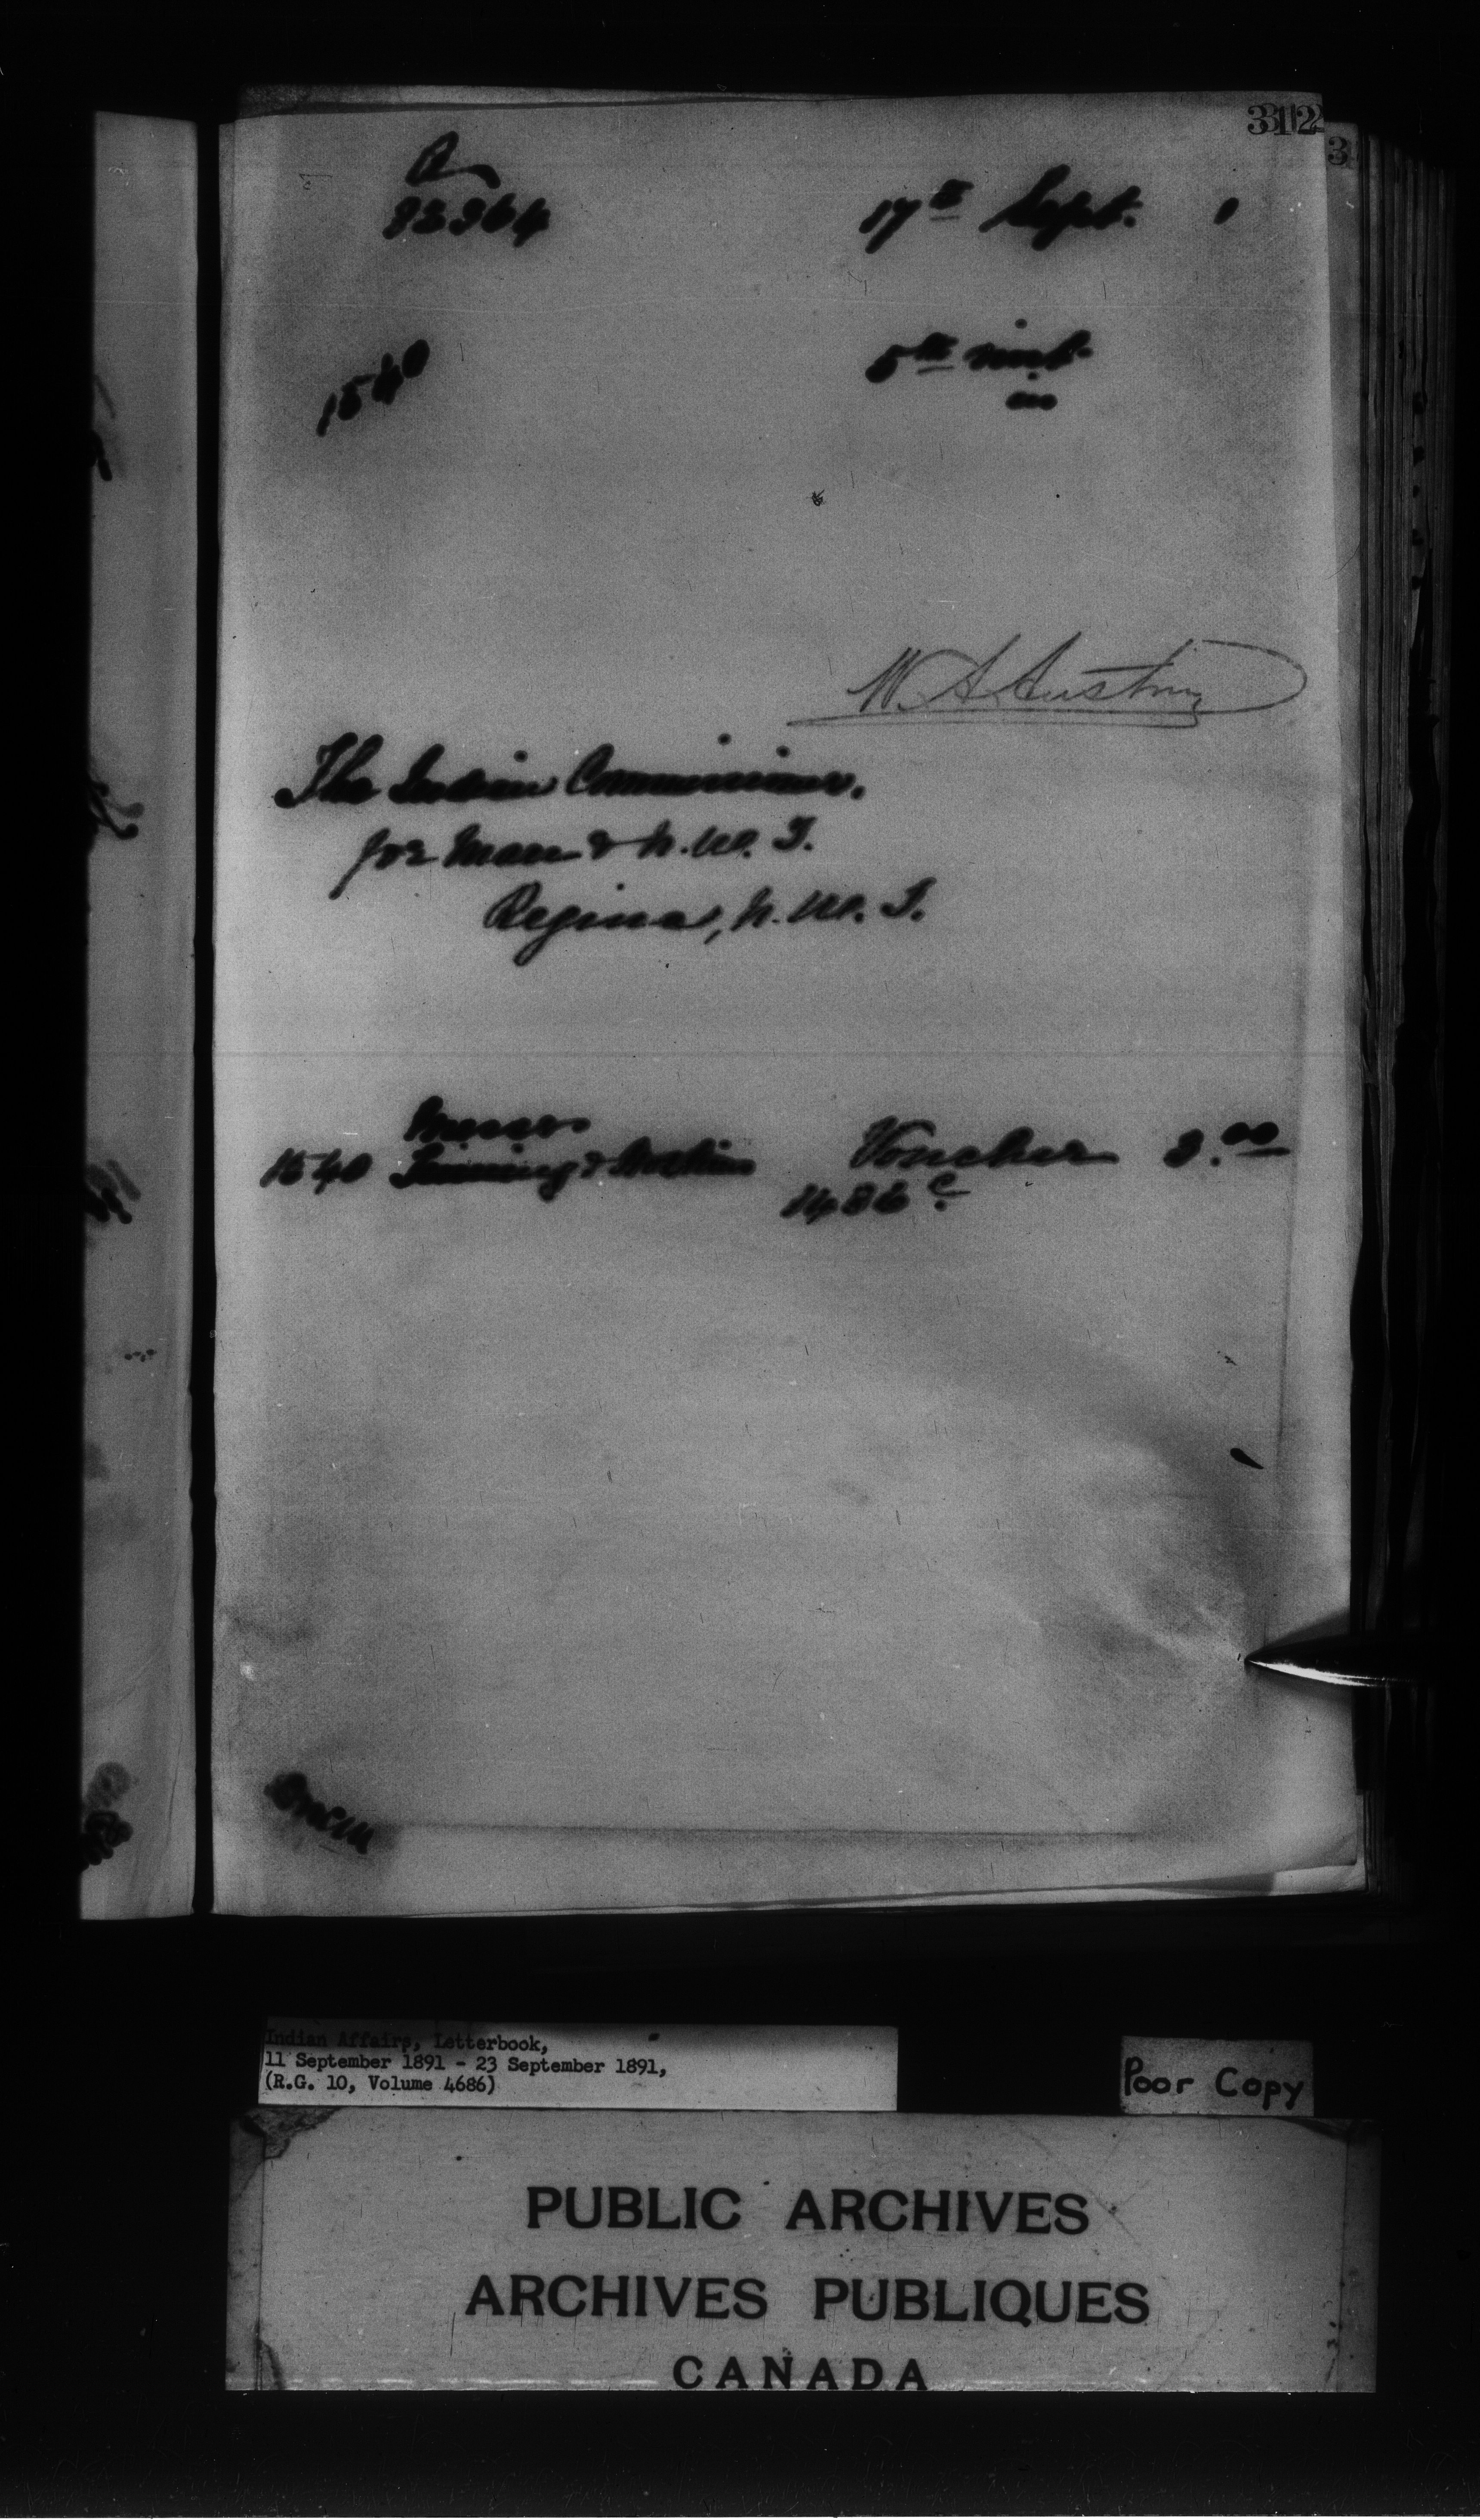 312
3
17th Sept. 1
5th inst
1540
in
W. A. Austin
The Indian Commissioner.
for Man & N.W.T.
Regina, N.W.T.
Messrs
1540 Voucher 3.00
1486 c
Indian Affairs, Letterbook,
11 September 1891 - 23 September 1891,
(R.G. 10, Volume 4686)
Poor Copy
PUBLIC ARCHIVES
ARCHIVES PUBLIQUES
CANADA